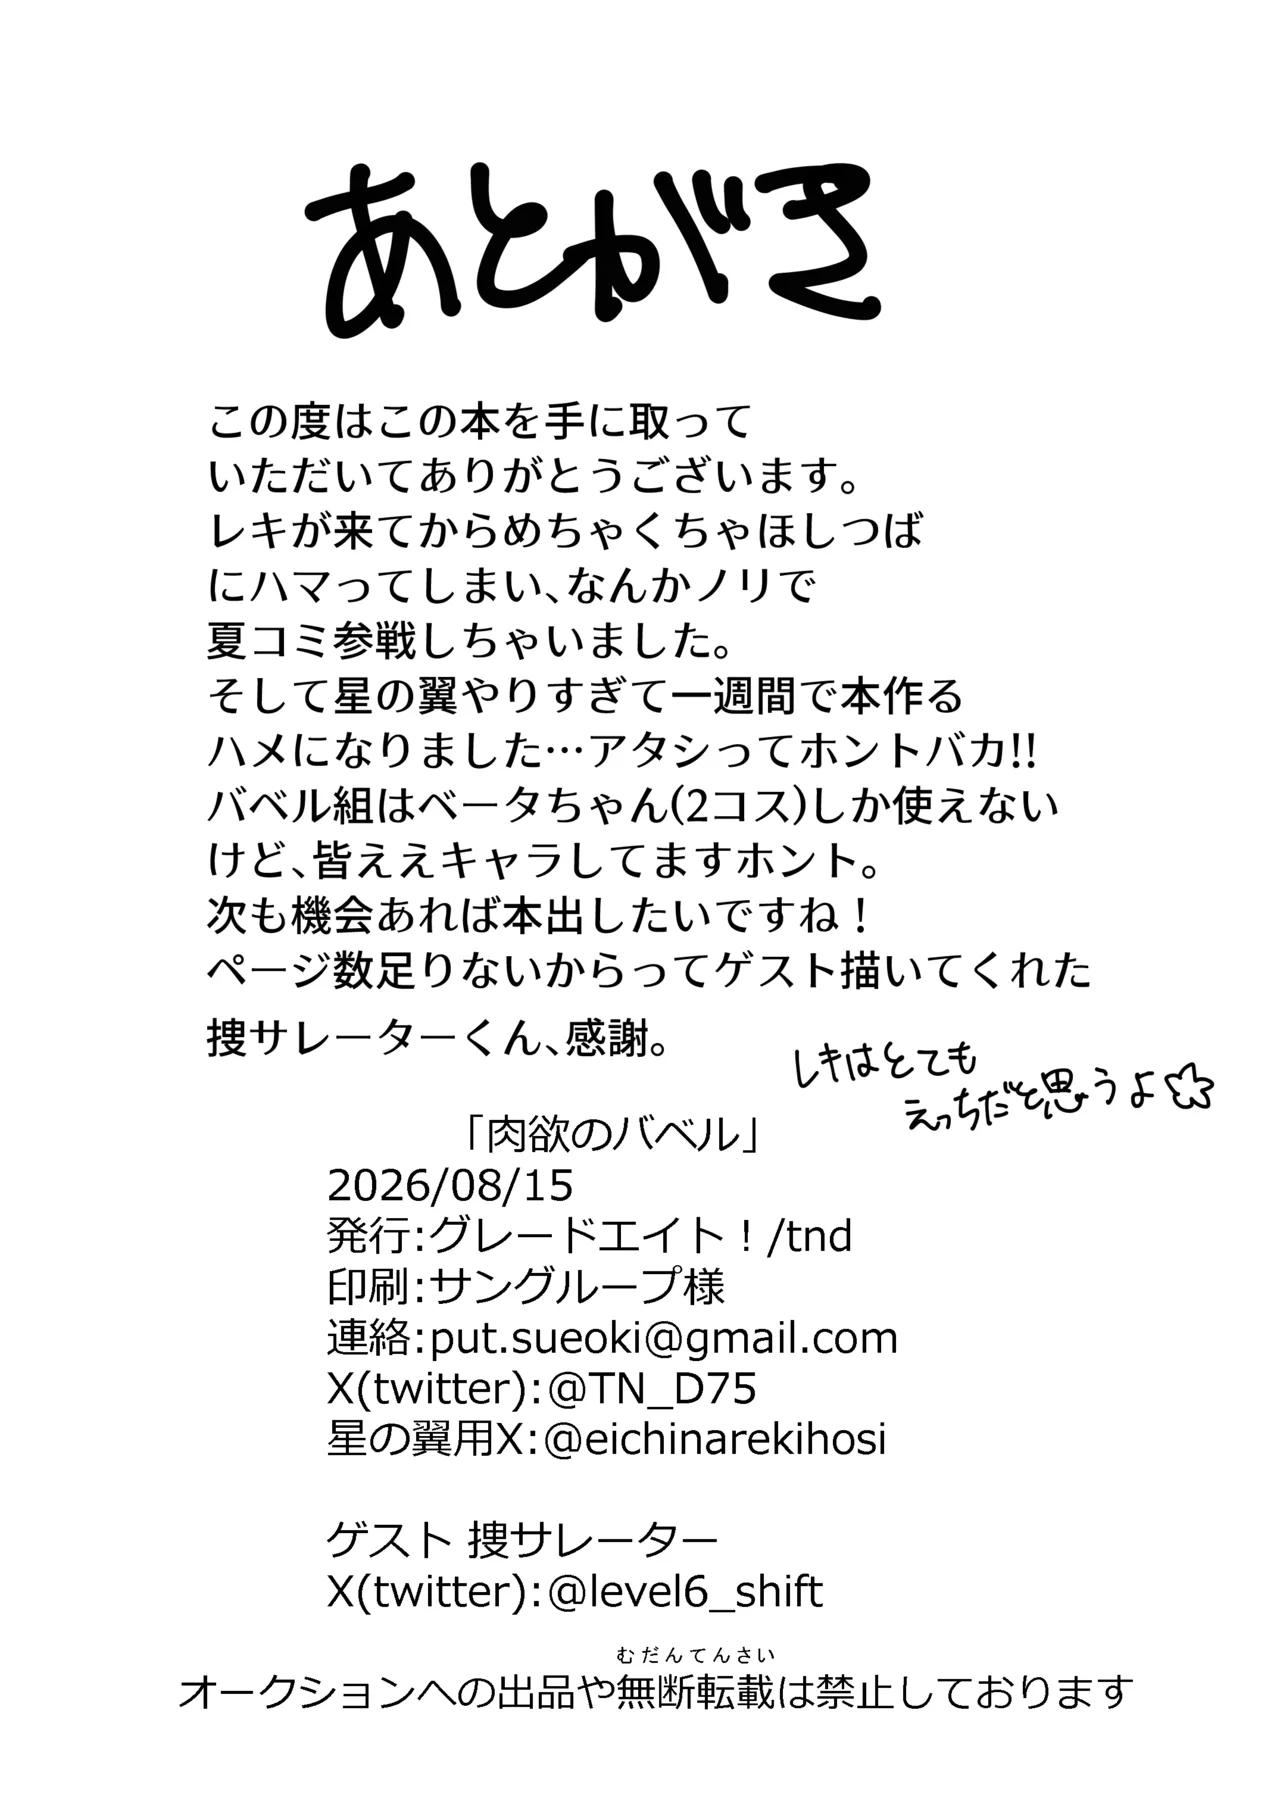 あとがき
この度はこの本を手に取って
いただいてありがとうございます。
レキが来てからめちゃくちゃほしつば
にハマってしまい、なんかノリで
夏コミ参戦しちゃいました。
そして星の翼やりすぎて一週間で本作る
ハメになりました…アタシってホントバカ!!
バベル組はベータちゃん(2コス)しか使えない
けど、皆ええキャラしてますホント。
次も機会あれば本出したいですね！
ページ数足りないからってゲスト描いてくれた
捜サレーターくん、感謝。
レキはとても
えっちだと思うよ☆
「肉欲のバベル」
2026/08/15
発行:グレードエイト！/tnd
印刷:サングループ様
連絡:put.sueoki@gmail.com
X(twitter):@TN_D75
星の翼用X:@eichinarekihosi
ゲスト 捜サレーター
X(twitter):@level6_shift
むだんてんさい
オークションへの出品や無断転載は禁止しております